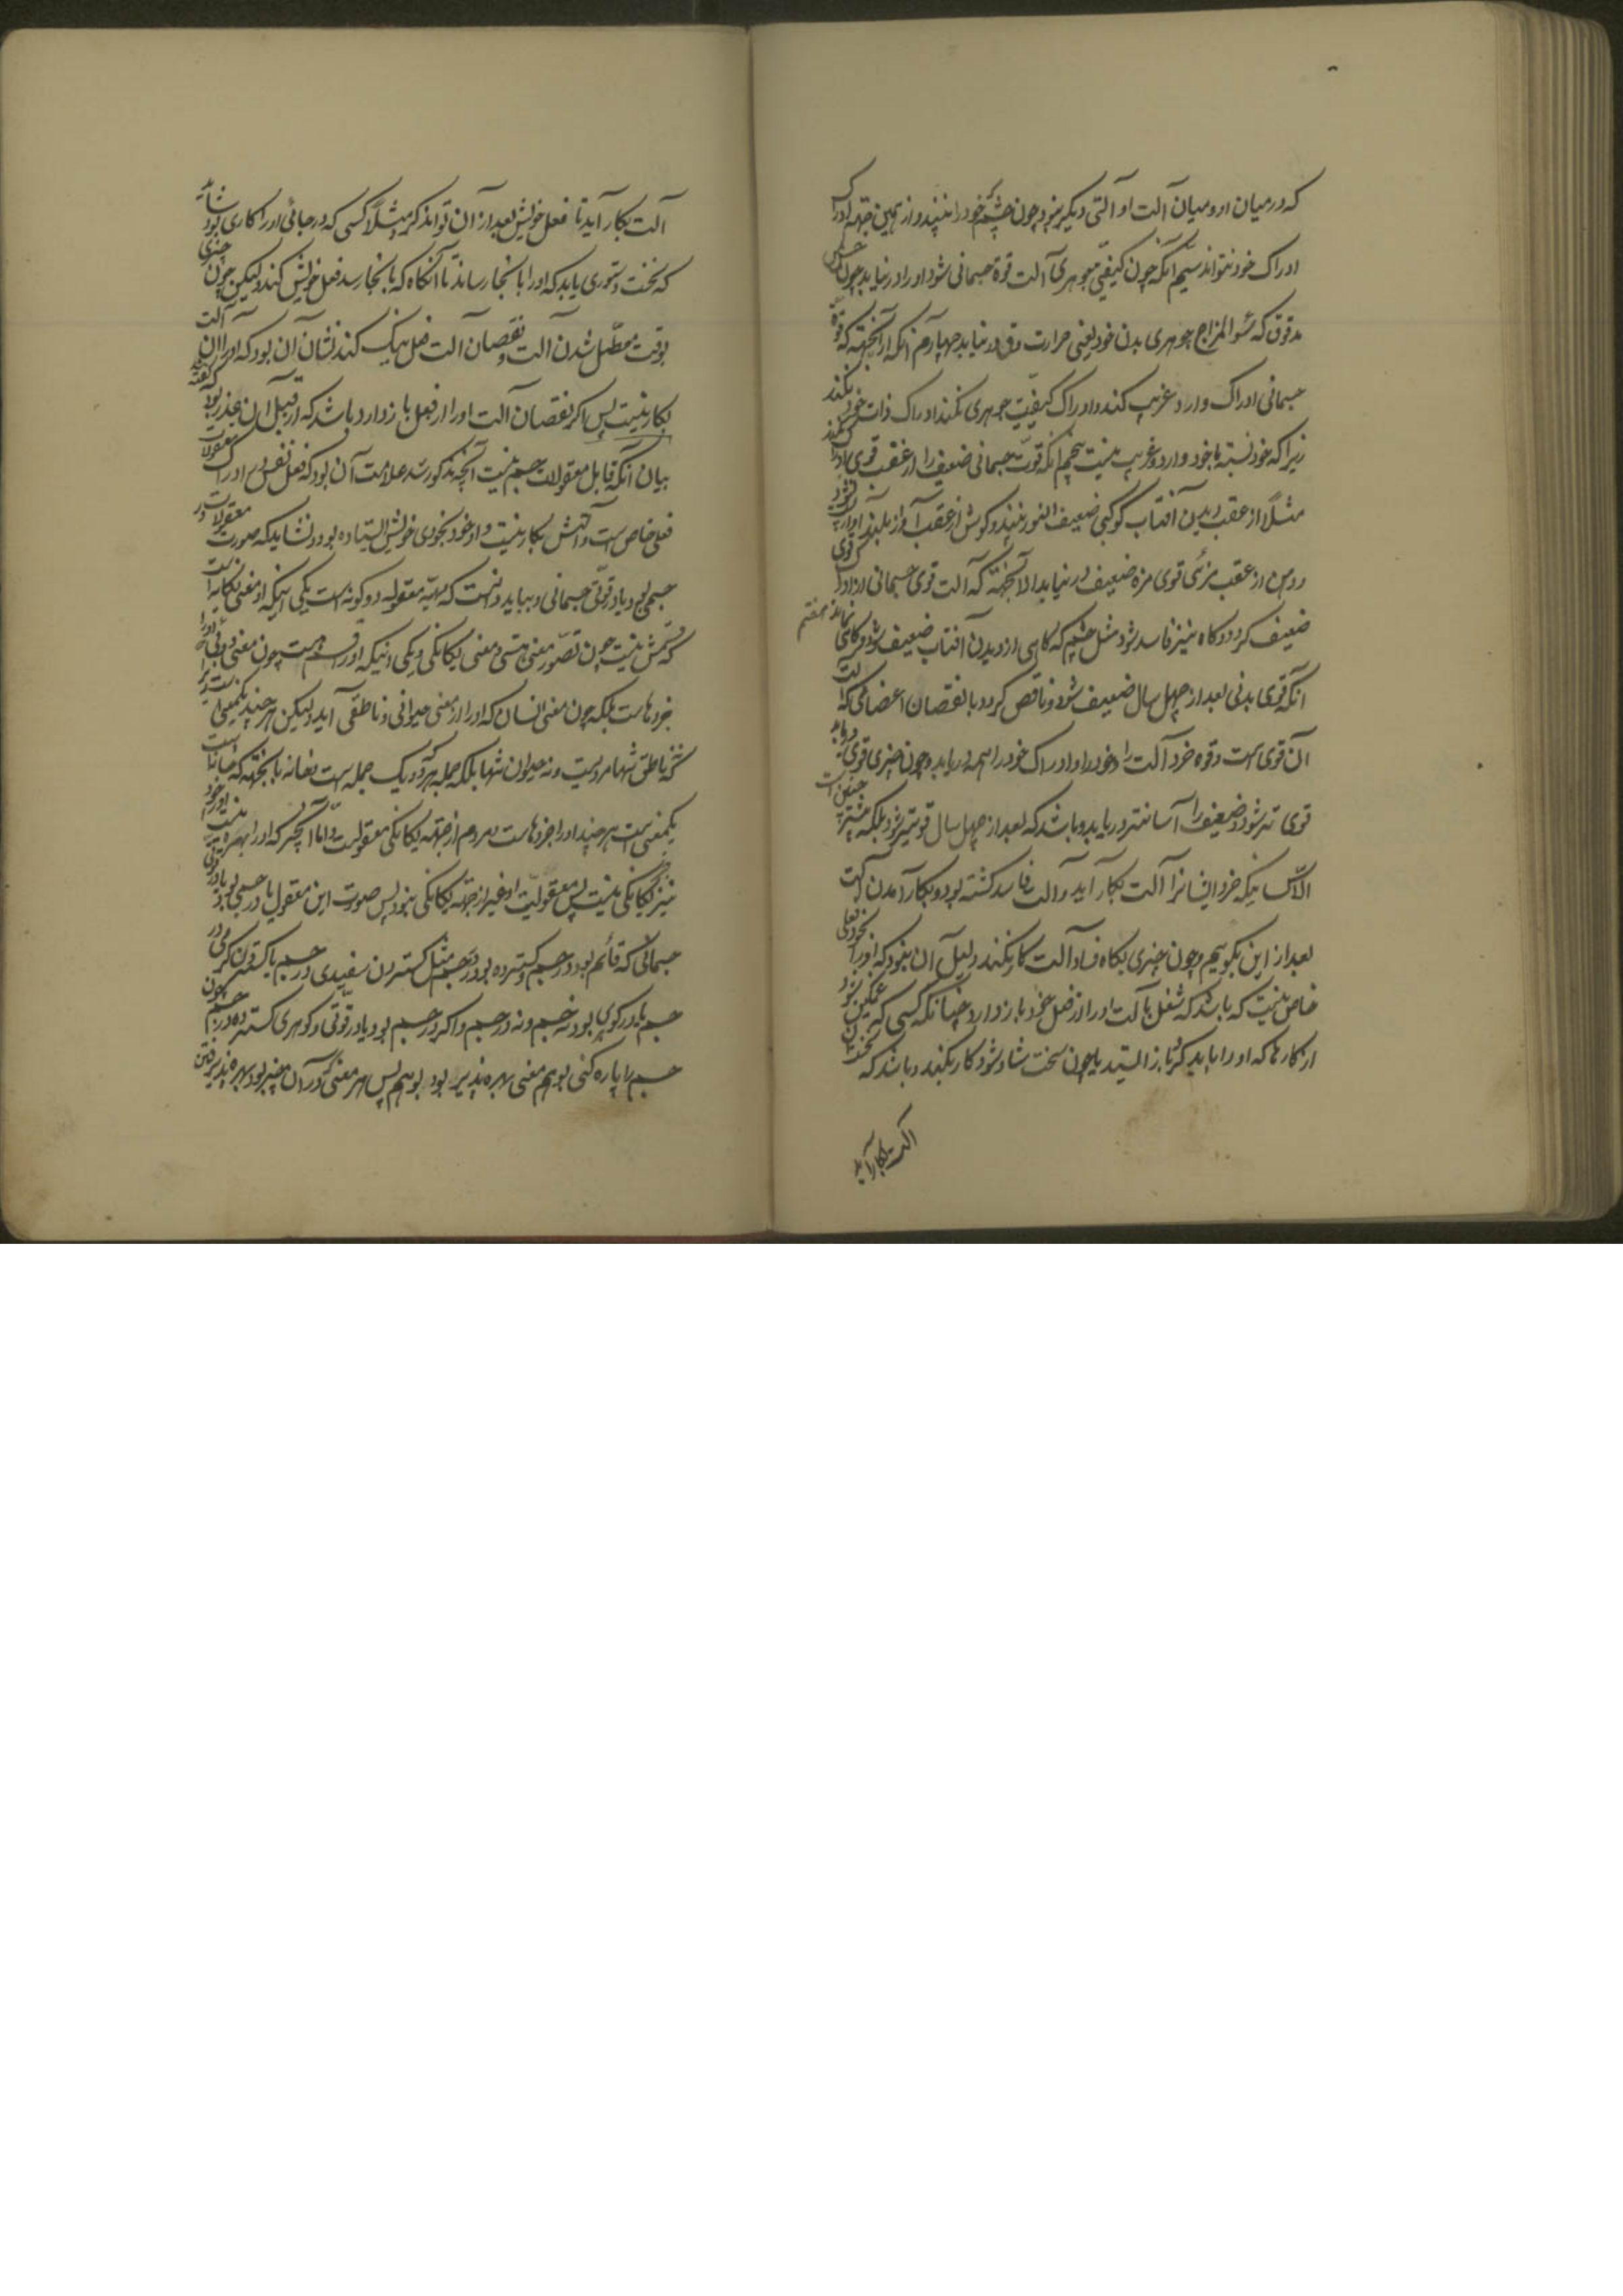 که در میان او و میان آلت او آلتی دیگر نبود چون چشم خود را نبیند و از همین جهة ادراک
ادراک خود نتواند سیم آنکه چون کیفیتی جوهری آلت قوة جسمانی شود او را در نیابد چون
مدقوق که سوء المزاج جوهری بدن خود یعنی حرارت دق در نیابد چهارم آنکه از آنجهة که قوة
جسمانی ادراک وارد غریب کند و ادراک کیفیت جوهری نکند ادراک ذات خود نکند
زیرا که خود نسبة باخود وارد و غریب نیست پنجم آنکه قوت جسمانی ضعیف را از عقب قوی
مثلا از عقب دیدن آفتاب کوکبی ضعیف النور نبیند و گوش از عقب آواز بلند آواز
و دهن از عقب مزئی قوی مزه ضعیف در نیابد الا آنجهة که آلت قوی جسمانی از
ضعیف گردد و گاه نیز فاسد شود مثل چشم که گاهی از دیدن آفتاب ضعیف شود و گاهی هفتم
آنکه قوی بدنی بعد از چهل سال ضعیف شود و ناقص گردد با نقصان اعضائی که آلت
آن قوی است و قوه خرد آلت را و خود را و ادراک خود را همه دریابد و چون چیزی قوی دریابد
قوی تر شود و ضعیف را آسانتر دریابد و باشد که بعد از چهل سال قویتر شود بلکه بیشتر چنین است
آلت بکار آید و آلت فاسد گشته بود و بکار آمدن
بعد از این بگوییم و چون چیزی بگاه فساد آلت کار نکند دلیل آن نبود که او را بخود فعلی
خاص نیست که باشد که شغل با آلت او را از فعل خود باز دارد چنانکه کسی که غمگین شود
از کارها که او را باید کرد باز ایستد یا چون سخت شاد شود کار نکند و باشد که نخست
آلت بکار آید
آلت بکار آید تا فعل خویش بعد از آن تواند کرد مثلا کسی که در جائی او را کاری بود شاید
که نخست ستوری یابد که او را با نجا رساند تا آنگاه که بانجا رسد فعل خویش کند و لیکن چون چیزی
بوقت معطل شدن آلت و نقصان آلت فعل نیک کند نشان آن بود که او را آن آلت
بکار نیست پس اگر نقصان آلت او را از فعل باز دارد باشد که از قبل این عذر بود که گفته
بیان آنکه قابل معقولات جسم نیست آنچه مذکور شد علامت آن بود که فعل نفس در ادراک معقولات
فعلی خاص است و آلتش بکار نیست و او خود بخودی خویش ایستاده بود و نشاید که صورت معقولات در
جسمی بود یا در قوتی جسمانی و بباید دانست که معقوله دو گونه است یکی اینکه او معنی یگانه است
که قسمش نیست چون تصور معنی هستی و معنی یگانگی و یکی اینکه او را قسم هست چون معنی
جزوهاست بلکه چون معنی انسان که او را از معنی حیوانی و ناطقی آید و لیکن هر چند یکمعنی است
نه ناطق تنها مردم است و نه حیوان تنها بلکه جمله هر دو و یک جمله است
یکمعنی است هر چند او را جزوهاست و مردم از جهة یگانگی معقول است و اما آن چیز که او را بهره
نیز یگانگی نیست پس معقولیت او غیر از جهة یگانگی نبود پس صورت این معقول یا در جسمی بود یا در قوتی
جسمانی که قائم بود در جسم و گسترده بود در جسم مثل گستردن سفیدی در جسم یا گستردن گرمی در
جسم یا در گوهری بود نه جسم و نه در جسم و اگر در جسم بود یا در قوتی و گوهری گسترده در جسم چون
جسم را پاره کنی بوهم معنی بهره پذیر بود بوهم پس هر معنی که در آن چیز بود بهره پذیرفتن